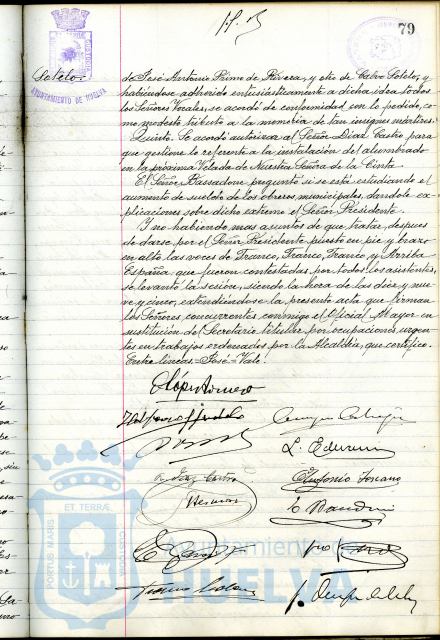 79
Sotelo.
AYUNTAMIENTO DE HUELVA
de José Antonio Primo de Rivera, y otro de Calvo Sotelo, y
habiéndose adherido entusiásticamente a dicha idea todos
los Señores Vocales, se acordó de conformidad con lo pedido, co-
mo modesto tributo a la memoria de tan insignes mártires.
Quinto. Se acordó autorizar al Señor Díaz Castro para
que gestione lo referente a la instalación del alumbrado
en la próxima Velada de Nuestra Señora de la Cinta.
El Señor Bassadone preguntó si se está estudiando el
aumento de sueldo de los obreros municipales, dándole ex-
plicaciones sobre dicho extremo el Señor Presidente.
Y no habiendo mas asuntos de que tratar, despues
de darse por el Señor Presidente puesto en pie y brazo
en alto, las voces de Franco, Franco, Franco y Arriba
España, que fueron contestadas por todos los asistentes,
se levantó la sesión, siendo la hora de las diez y nue-
ve y cinco, extendiéndose la presente acta que firman
los Señores concurrentes, conmigo el Oficial Mayor en
sustitución del Secretario titular por ocupaciones urgen-
tes en trabajos ordenados por la Alcaldía, que certifico.
Entre líneas = José = Vale.
Díaz Castro
PORTUS MARIS ET TERRAE CUSTODIA
Ayuntamiento de
HUELVA